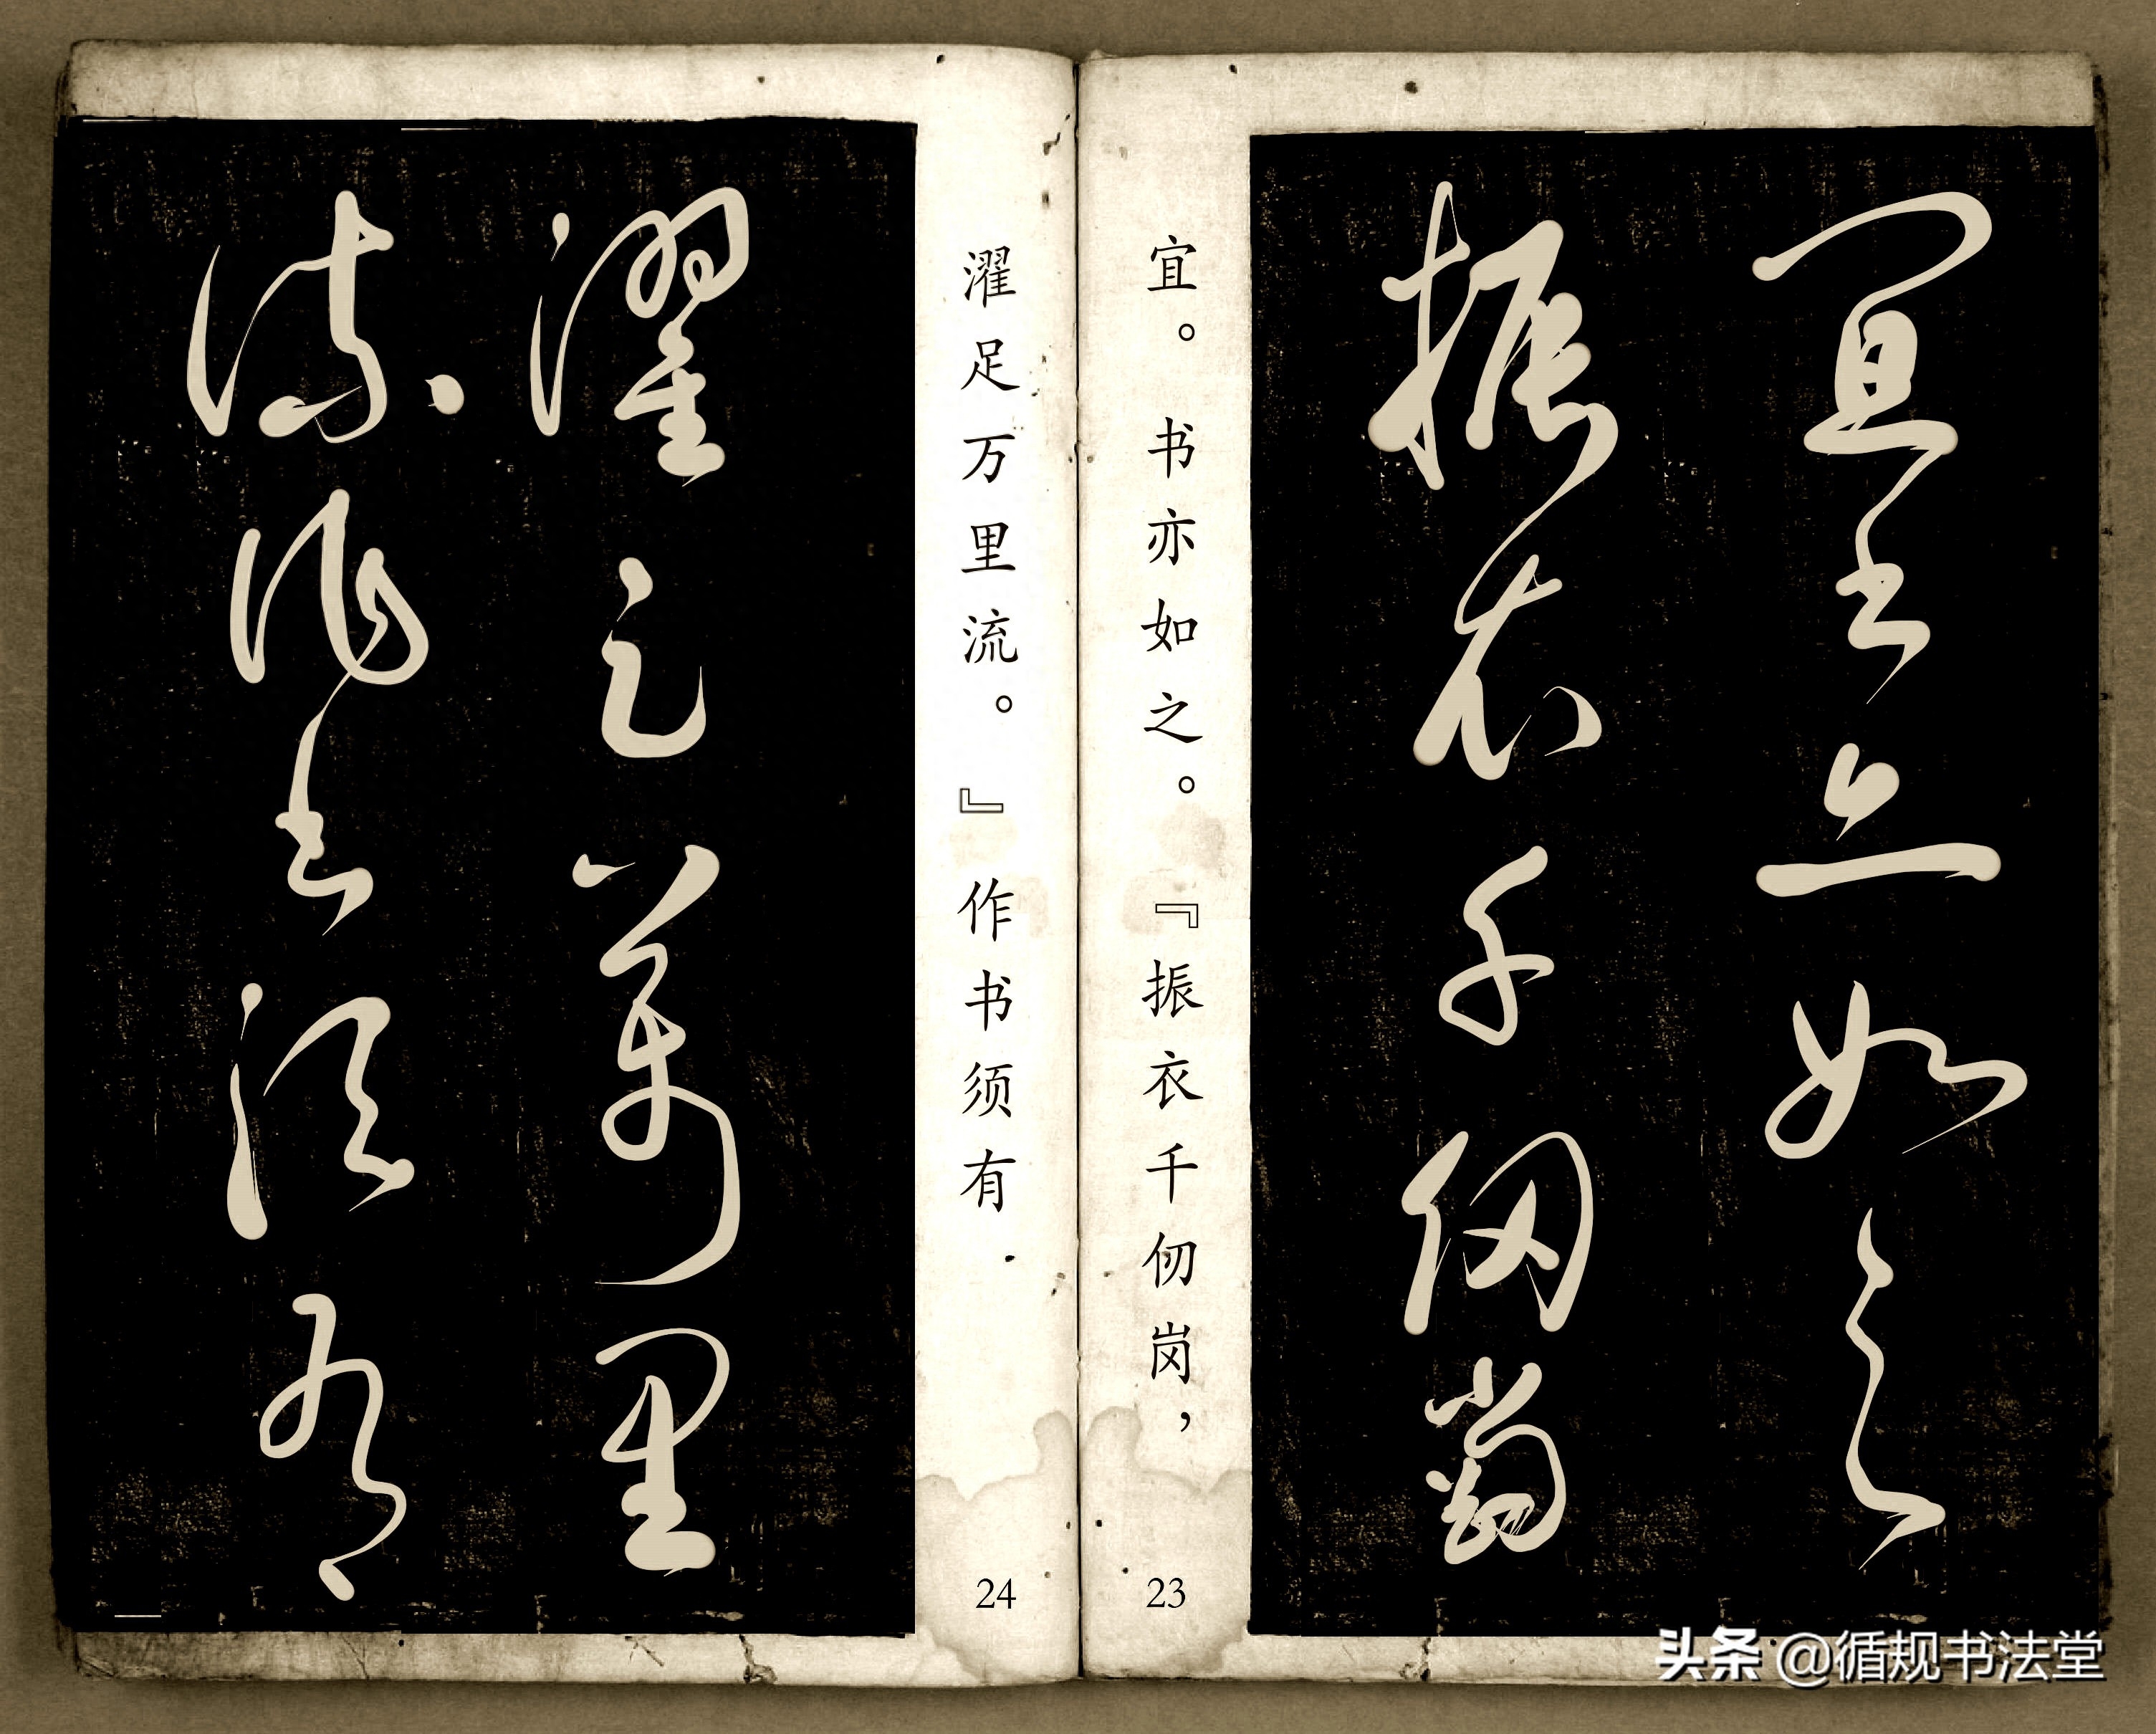 宜书亦如之
振衣千仞岗
宜。书亦如之。『振衣千仞岗，
23
濯足万里流。』作书须有.
24
濯足萬里
流作书须有
头条 @循规书法堂